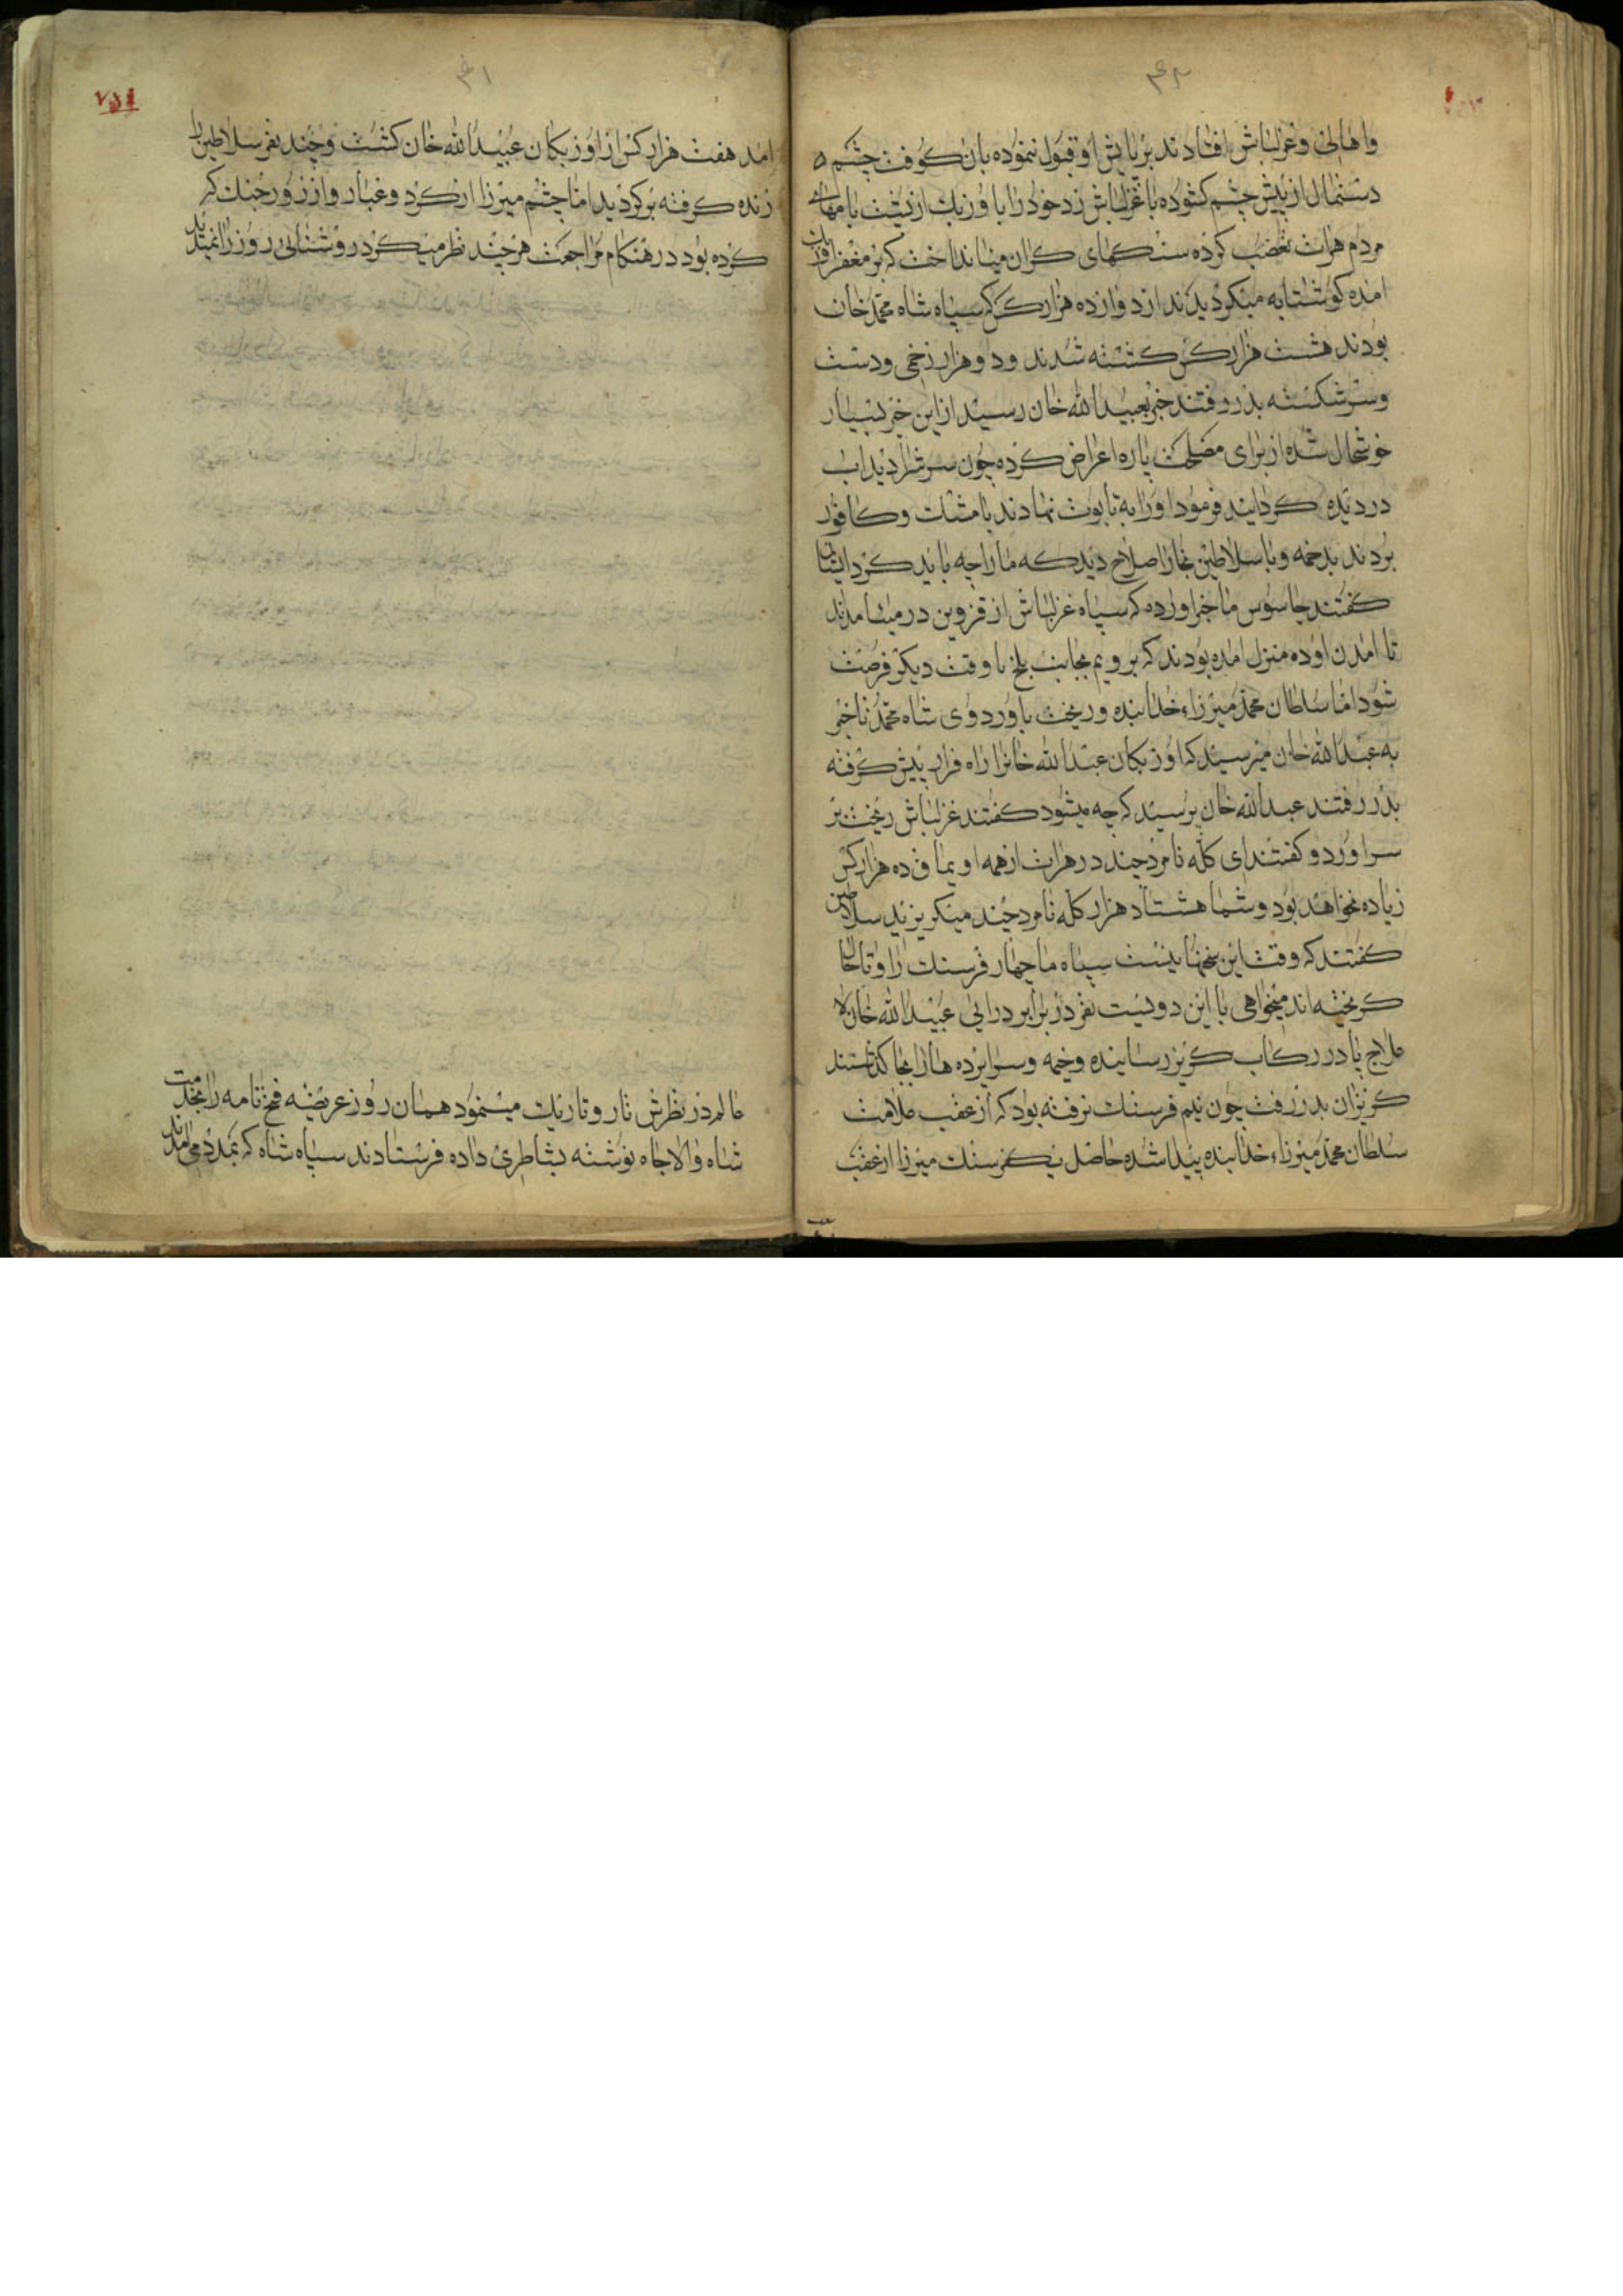 واهالی وغزلباش افتادند بر پایش او قبول ننموده بان کوفت چشم
دستمال از پیش چشم کشوده با غزلباش زد خود را با وزبک از پشت بامهای
مردم هراث تعصب کرده سنکهای کران میانداخت که بر مغفر
امده کوشتابه میکردیدند از دوازده هزار کس که سپاه شاه محمد خان
بودند هشت هزار کس کشته شدند ودوهزار زخمی ودست
وسر شکسته بدر رفتند خبر بعبیدالله خان رسید از این خبر بسیار
خوشحال شده از برای مصلحت پاره اعراض کرده چون سرش را دید اب
در دیده کردانید فرمود او را به تابوت نهادند با مشک وکافور
بردند بدخمه وبا سلاطین بخارا صلاح دید که ما را چه باید کرد ایشان
کفتند جاسوس ما خبر اورده که سپاه غزلباش از قزوین در میامدند
تا امدن او ده منزل امده بودند که برویم بجانب بلخ تا وقت دیکر فرصت
شود اما سلطان محمد میرزاء خدابنده وریخت باوردوی شاه محمد تا خبر
به عبدالله خان میرسید که اوزبکان عبدالله خانرا راه فرار پیش کرفته
بدر رفتند عبدالله خان پرسید که چه میشود کفتند غزلباش ریخت بر
سر اورد وکفتند ای کله نامرد چند در هراث از همه اویماق ده هزار کس
زیاده نخواهد بود وشما هشتاد هزار کله نامرد چند میکریزید سلاطین
کفتند که وقت این سخنها نیست سپاه ما چهار فرسنک راه تا حال
کریخته اند میخواهی با این دویست نفر در برابر درایی عبیدالله خان لا
علاج پا در رکاب کریز رسانیده وخیمه وسراپرده ها را بجا کذاشتند
کریزان بدر رفت چون نیم فرسنک نرفته بود که از عقب علامت
سلطان محمد میرزاء خدابنده پیدا شده حاصل یکفرسنک میرزا از عقب
۷۵۴
امد هفت هزار کس از اوزبکان عبیدالله خان کشت وچند نفر سلاطین را
زنده کرفته برکردید اما چشم میرزا از کرد وغبار واز زور جنک که
کرده بود در هنکام مراجعت هر چند نظر میکرد روشنایی روز را نمیدید
عالم در نظرش تار وتاریک میشنمود همان روز عریضه فتح نامه را بخدمت
شاه والاجاه نوشته بشاطری داده فرستادند سپاه شاه که بمدد می امدند